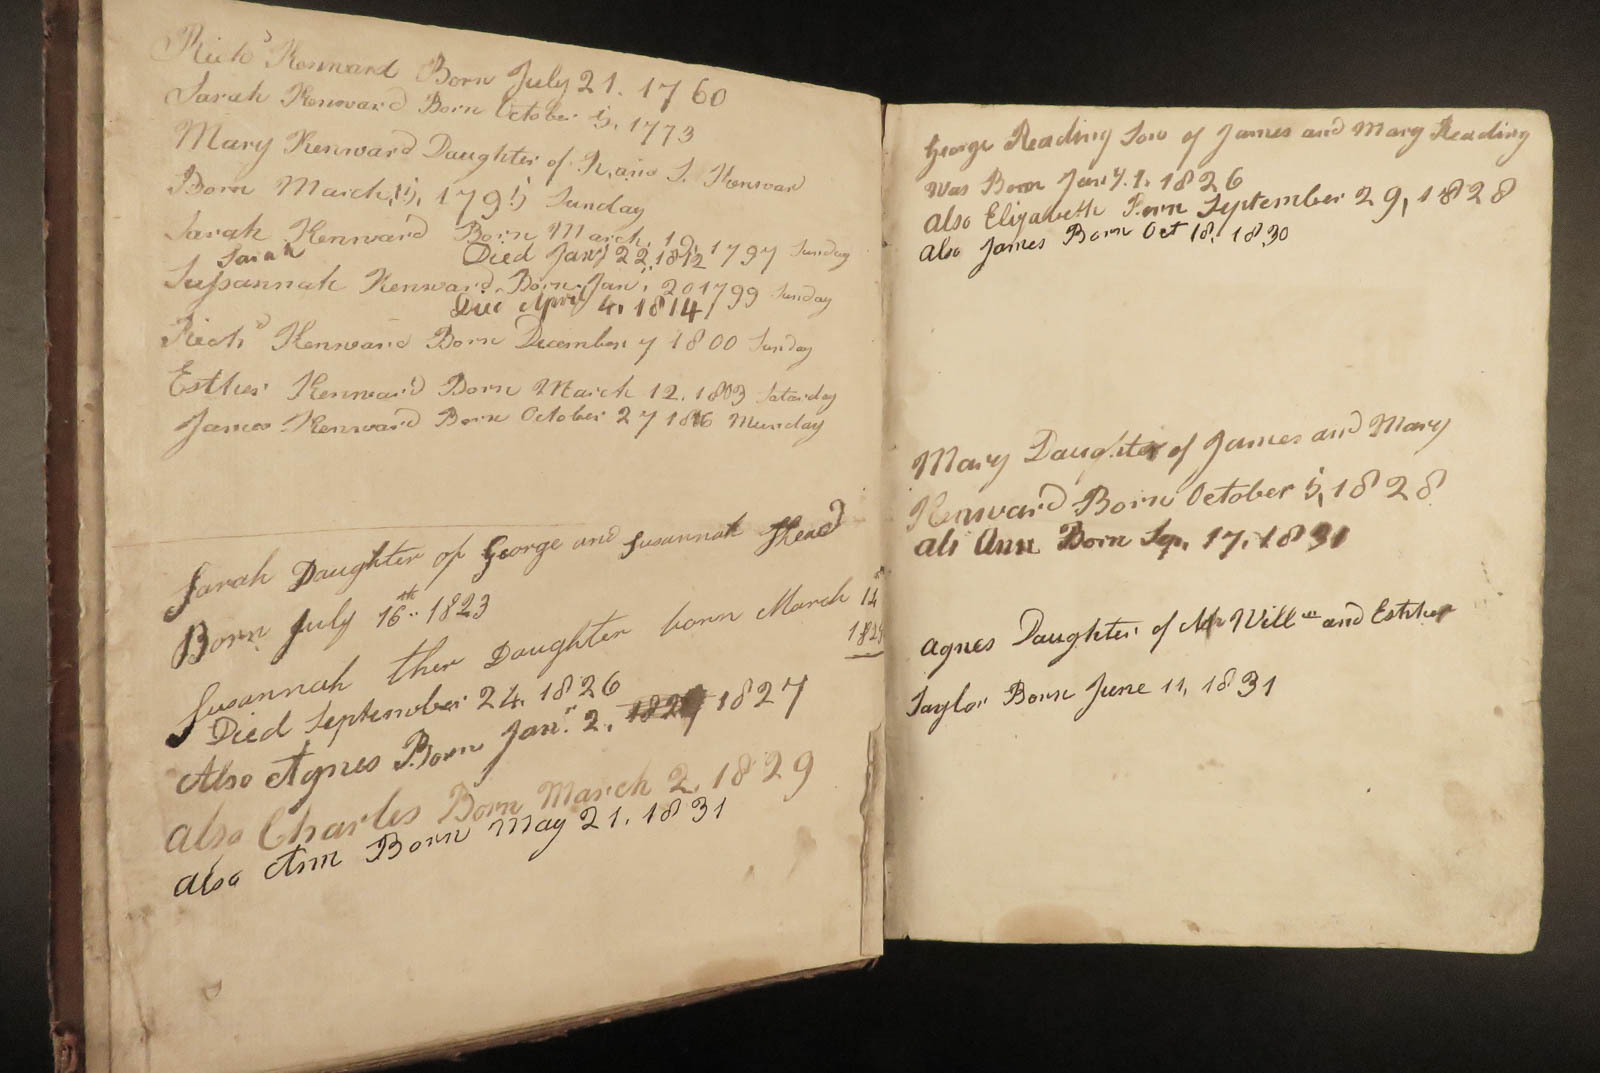 Rich.d Kenward Born July 21. 1760
Sarah Kenward Born October 5. 1773
Mary Kenward Daughter of R. and S. Kenward
Born March, 5, 1795 Sunday
Sarah Kenward Born March. 19. 1797 Sunday
Sarah Died Jany 22. 1812
Sussannah Kenward Born Jan. 20 1799 Sunday
Died April 4. 1814
Rich.d Kenward Born December 7 1800 Sunday
Esther Kenward Born March 12. 1803 Satarday
James Kenward Born October 27 1806 Munday
Sarah Daughter of George and Susannah Head
Born July 16th 1823
Susannah ther Daughter born March 14
Died September 24. 1826
Also Agnes Born Jan.r 2. 1827
also Charles Born March 2. 1829
also Ann Born May 21. 1831
George Reading Son of James and Mary Reading
Was Born Jany. 1. 1826
also Elizabeth Born September 29, 1828
also James Born Oct 18. 1830
Mary Daughter of James and Mary
Kenward Born October 5, 1828
als Ann Born Sep. 17. 1831
Agnes Daughter of Mr Will.m and Esther
Taylor Born June 11, 1831